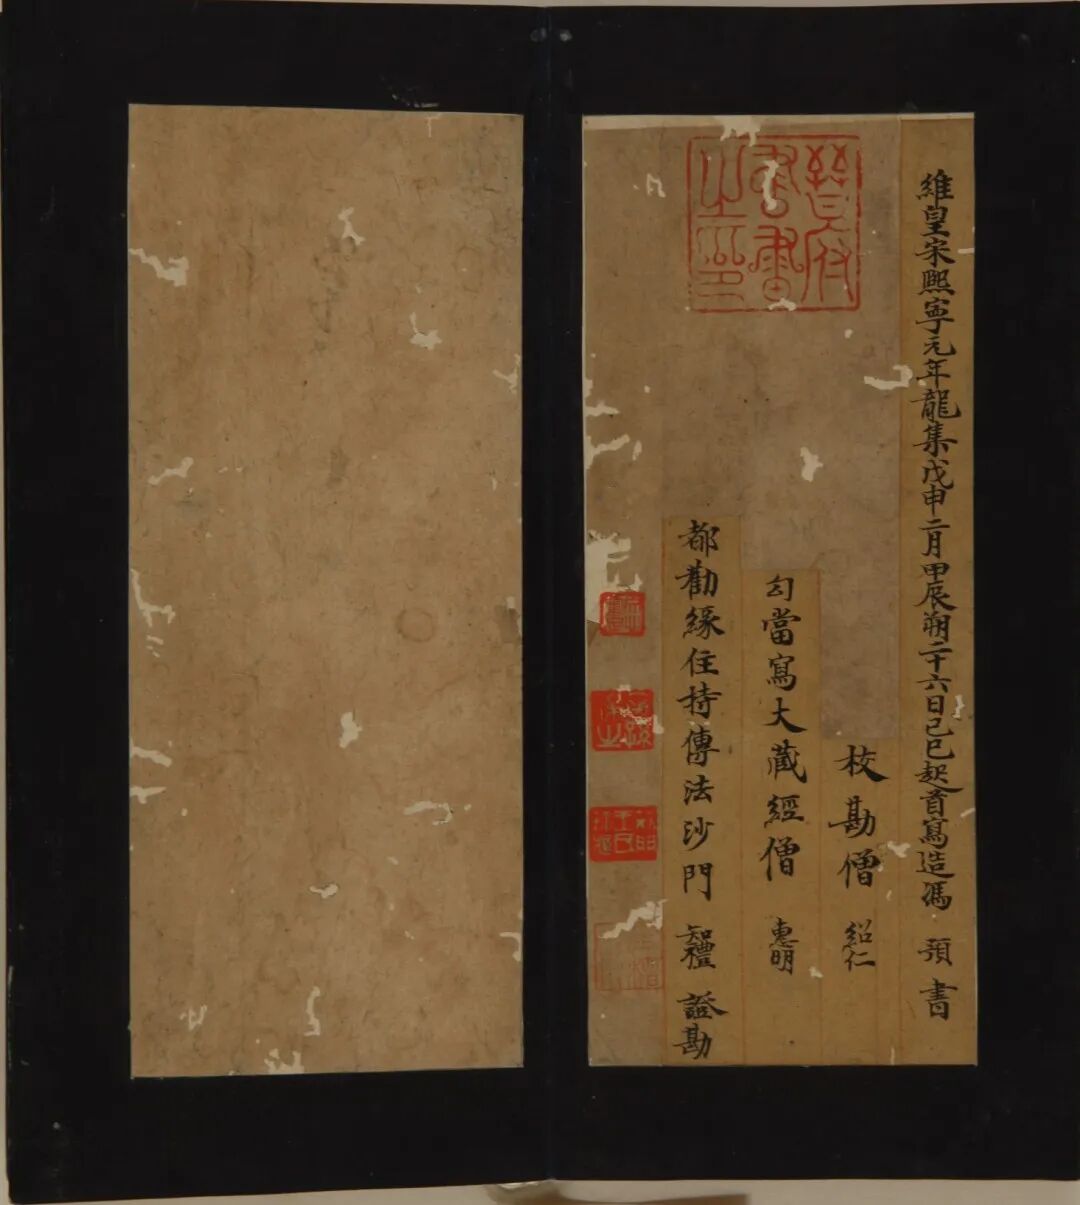 維皇宋熙寧元年龍集戊申二月甲辰朔二十六日己巳起首寫造馮 預 書
校勘僧 紹仁
勾當寫大藏經僧 惠明
都勸緣住持傳法沙門 知禮 證勘
晉府
書畫
之印